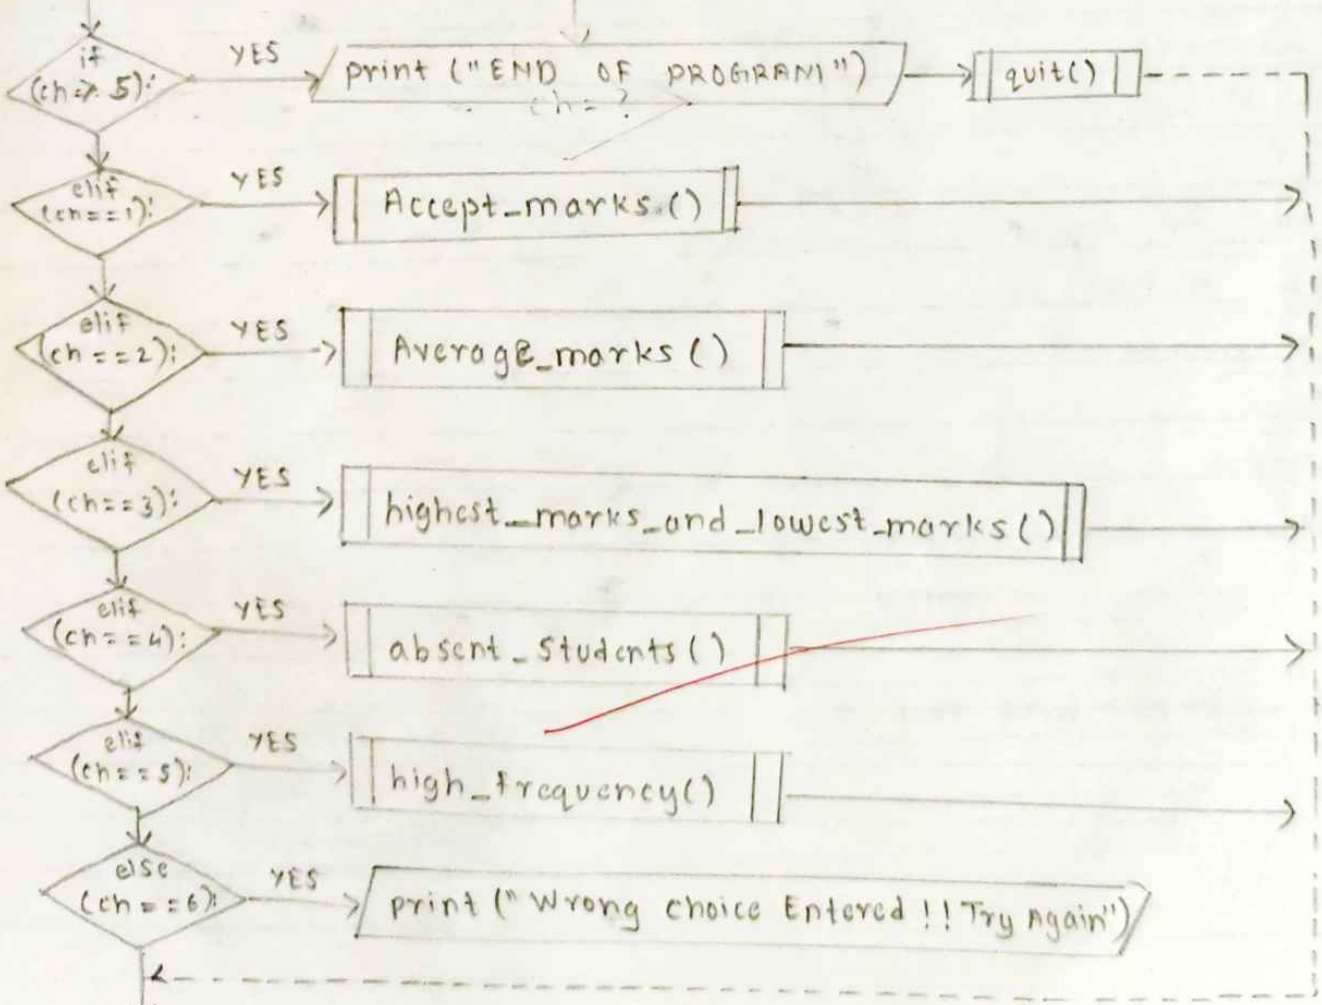 if
(ch > 5):
YES
print ("END OF PROGRAM")
quit()
ch = ?
elif
(ch==1):
YES
Accept_marks.()
elif
(ch==2):
YES
Average_marks()
elif
(ch==3):
YES
highest_marks_and_lowest_marks()
elif
(ch==4):
YES
absent_Students()
elif
(ch==5):
YES
high_frequency()
else
(ch==6):
YES
print ("Wrong choice Entered !! Try Again")